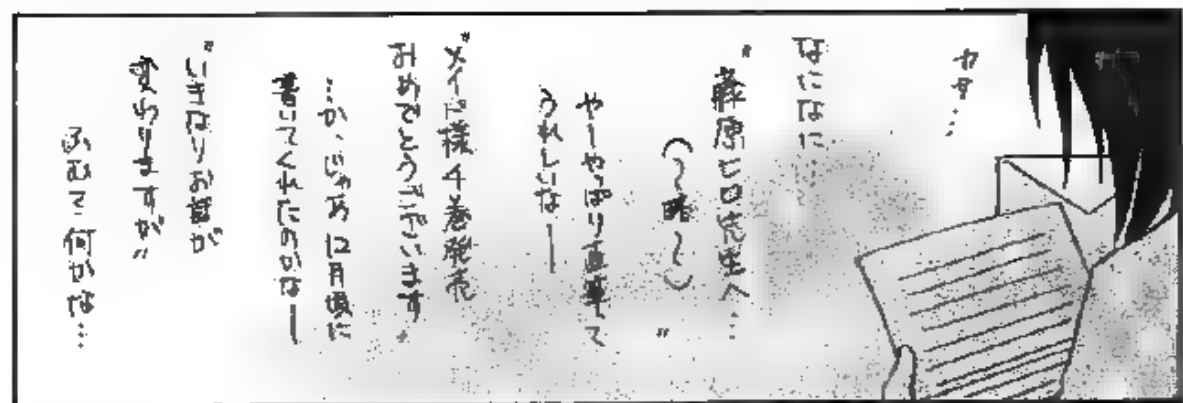 カサ…
なになに…
"藤原ヒロ先生へ…
(〜略〜)"
やーやっぱり直筆って
うれしいなー
"メイド様4巻発売
おめでとうございます。
…か、じゃあ12月頃に
書いてくれたのかなー
"いきなりお話が
変わりますが"
ふむふむ何かな…